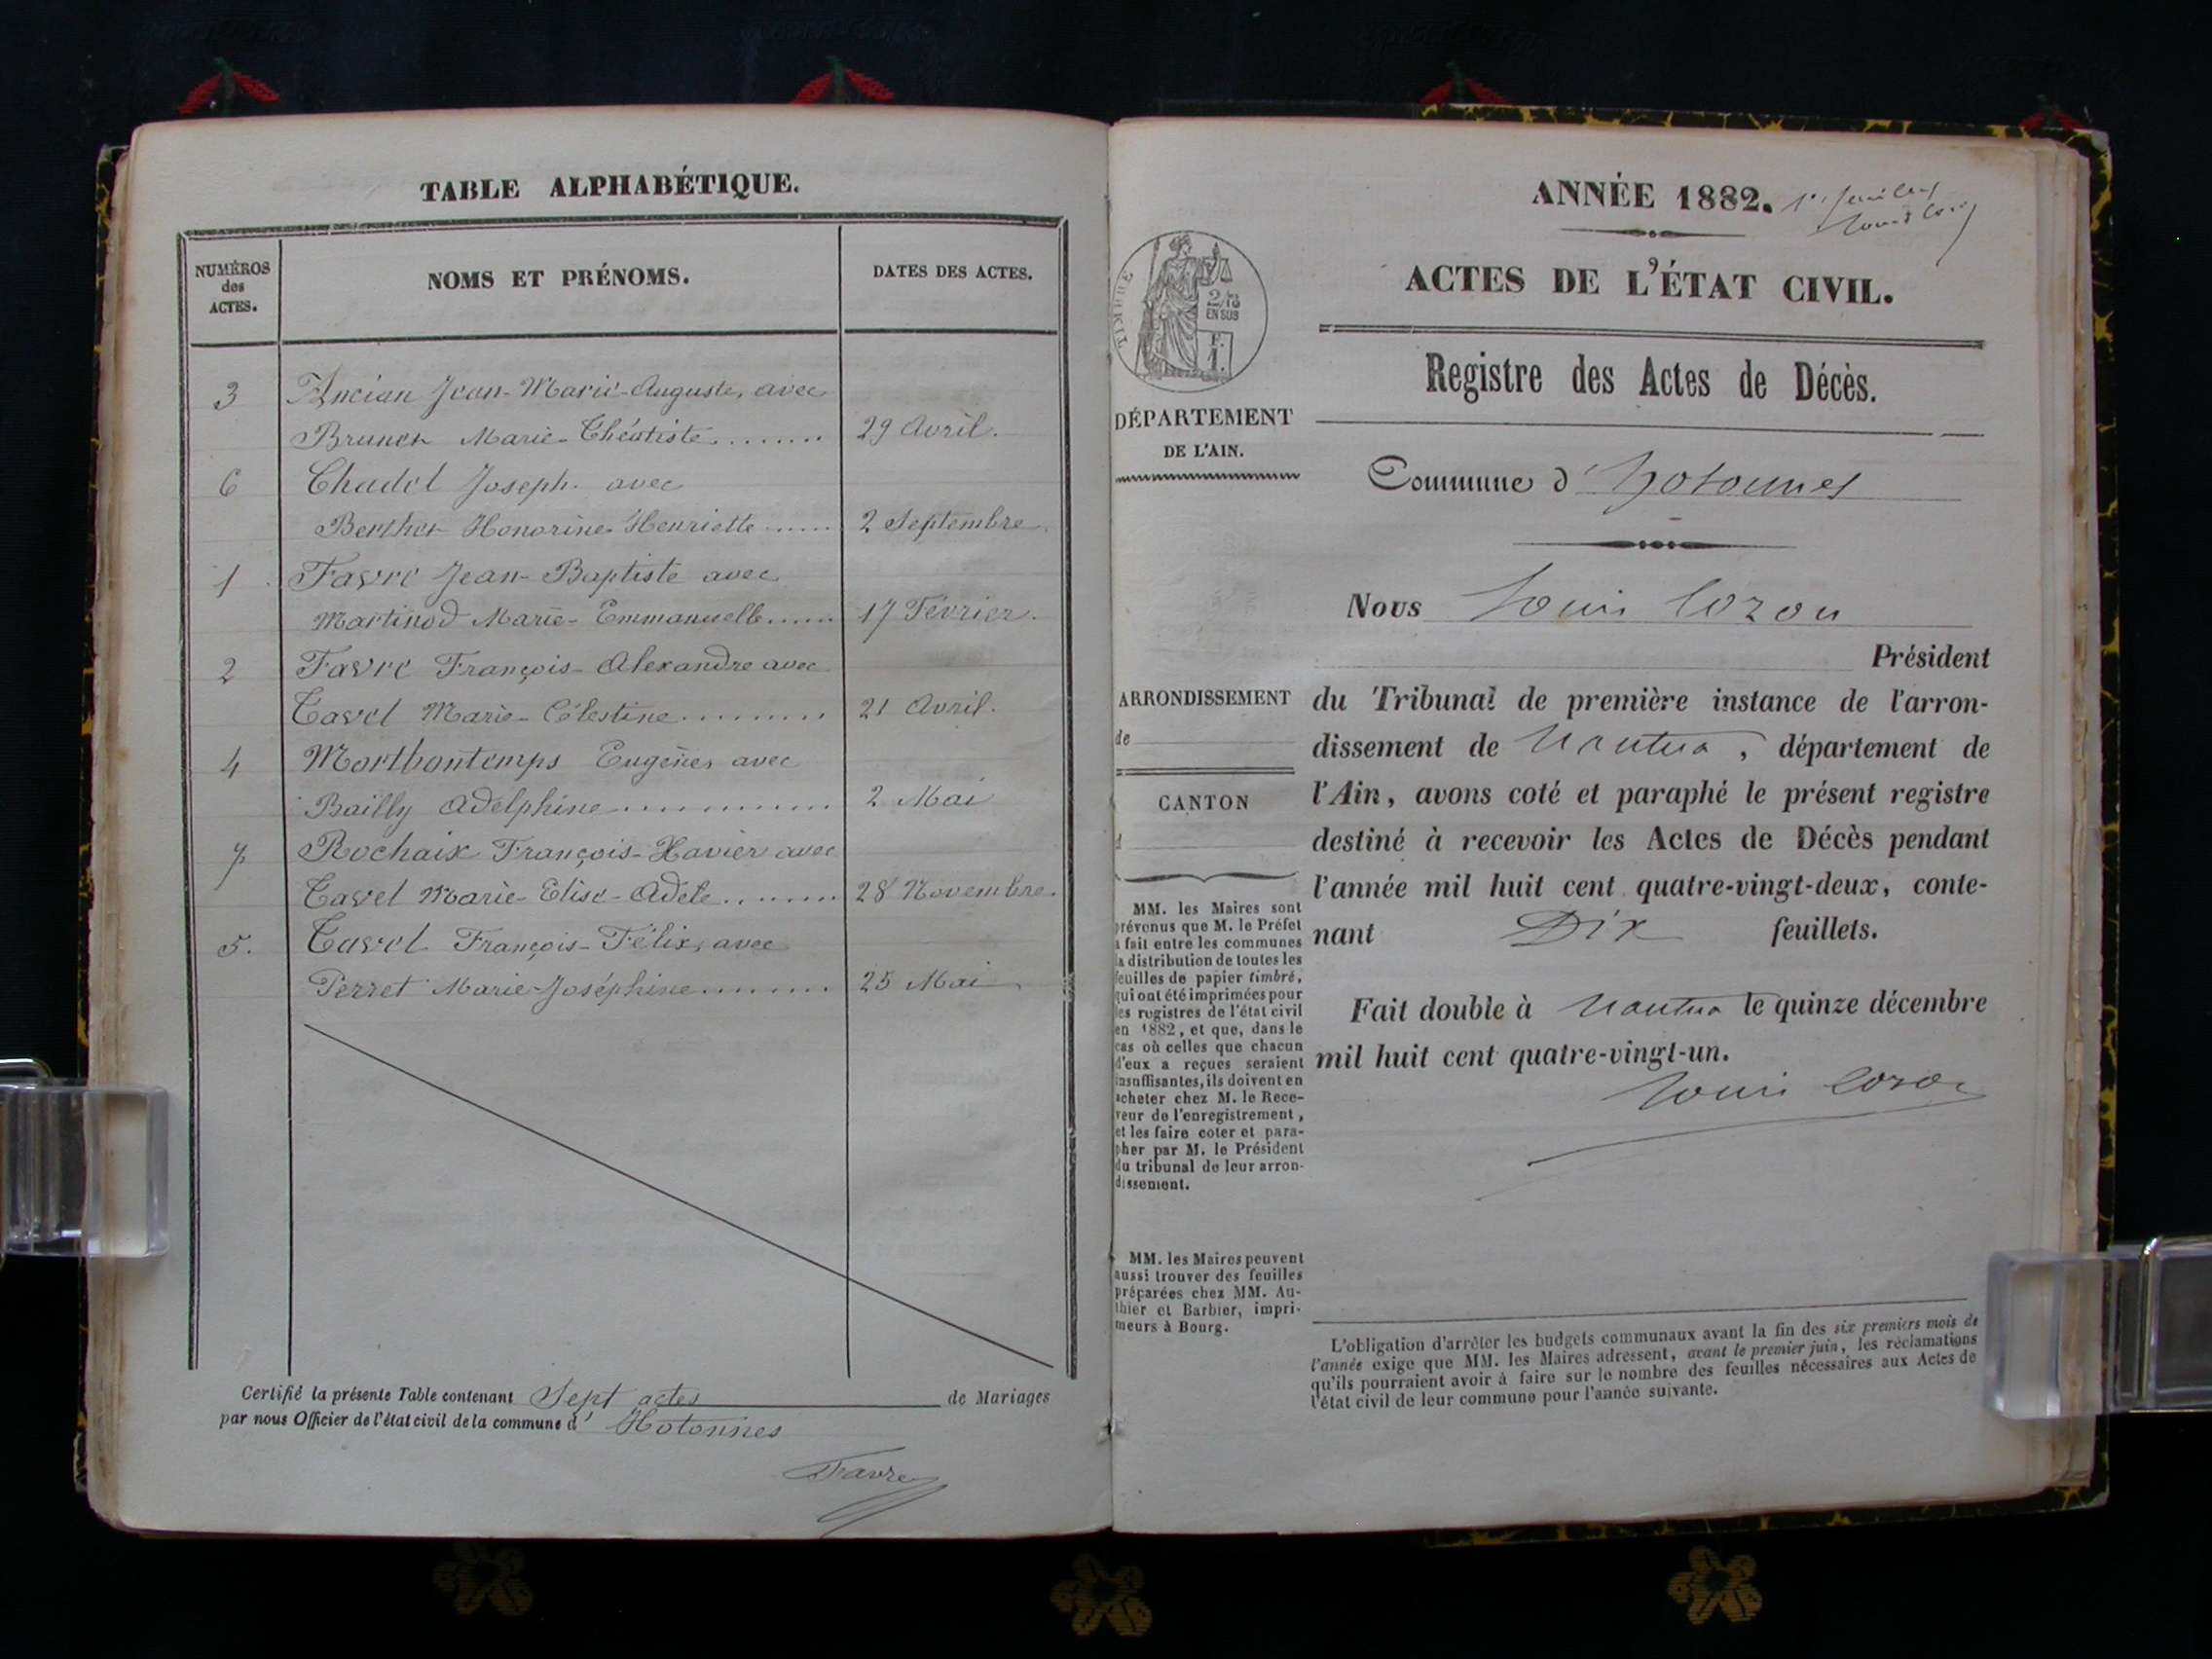 TABLE ALPHABÉTIQUE.
NUMÉROS
des
ACTES.
NOMS ET PRÉNOMS.
DATES DES ACTES.
3 Ancian Jean-Marie-Auguste, avec
Brunet Marie-Théotiste ........ 29 Avril.
6 Chadel Joseph. avec
Berthet Honorine Henriette ...... 2 Septembre.
1 Favre Jean-Baptiste avec
Martinod Marie-Emmanuelle ...... 17 Février.
2 Favre François-Alexandre avec
Tavel Marie-Célestine ......... 21 Avril.
4 Morthontemps Eugène, avec
Bailly Adelphine ............. 2 Mai
7 Rochaix François-Xavier avec
Tavel Marie-Elise-Adèle ........ 28 Novembre.
5. Tavel François-Félix, avec
Perret Marie-Joséphine ........ 25 Mai
Certifié la présente Table contenant Sept actes de Mariages
par nous Officier de l'état civil de la commune d' Hotonnes
Favre
ANNÉE 1882. 1er feuillet
Louis Cozon
ACTES DE L'ÉTAT CIVIL.
TIMBRE
2/10
EN SUS
F.
1.
Registre des Actes de Décès.
DÉPARTEMENT
DE L'AIN.
Commune d' Hotonnes
Nous Louis Cozon
Président
ARRONDISSEMENT
de
CANTON
d
du Tribunal de première instance de l'arron-
dissement de Nantua, département de
l'Ain, avons coté et paraphé le présent registre
destiné à recevoir les Actes de Décès pendant
l'année mil huit cent quatre-vingt-deux, conte-
nant Dix feuillets.
Fait double à Nantua le quinze décembre
mil huit cent quatre-vingt-un.
Louis Cozon
MM. les Maires sont
prévenus que M. le Préfet
a fait entre les communes
la distribution de toutes les
feuilles de papier timbré,
qui ont été imprimées pour
les registres de l'état civil
en 1882, et que, dans le
cas où celles que chacun
d'eux a reçues seraient
insuffisantes, ils doivent en
acheter chez M. le Rece-
veur de l'enregistrement,
et les faire coter et para-
pher par M. le Président
du tribunal de leur arron-
dissement.
MM. les Maires peuvent
aussi trouver des feuilles
préparées chez MM. Au-
thier et Barbier, impri-
meurs à Bourg.
L'obligation d'arrêter les budgets communaux avant la fin des six premiers mois de
l'année exige que MM. les Maires adressent, avant le premier juin, les réclamations
qu'ils pourraient avoir à faire sur le nombre des feuilles nécessaires aux Actes de
l'état civil de leur commune pour l'année suivante.